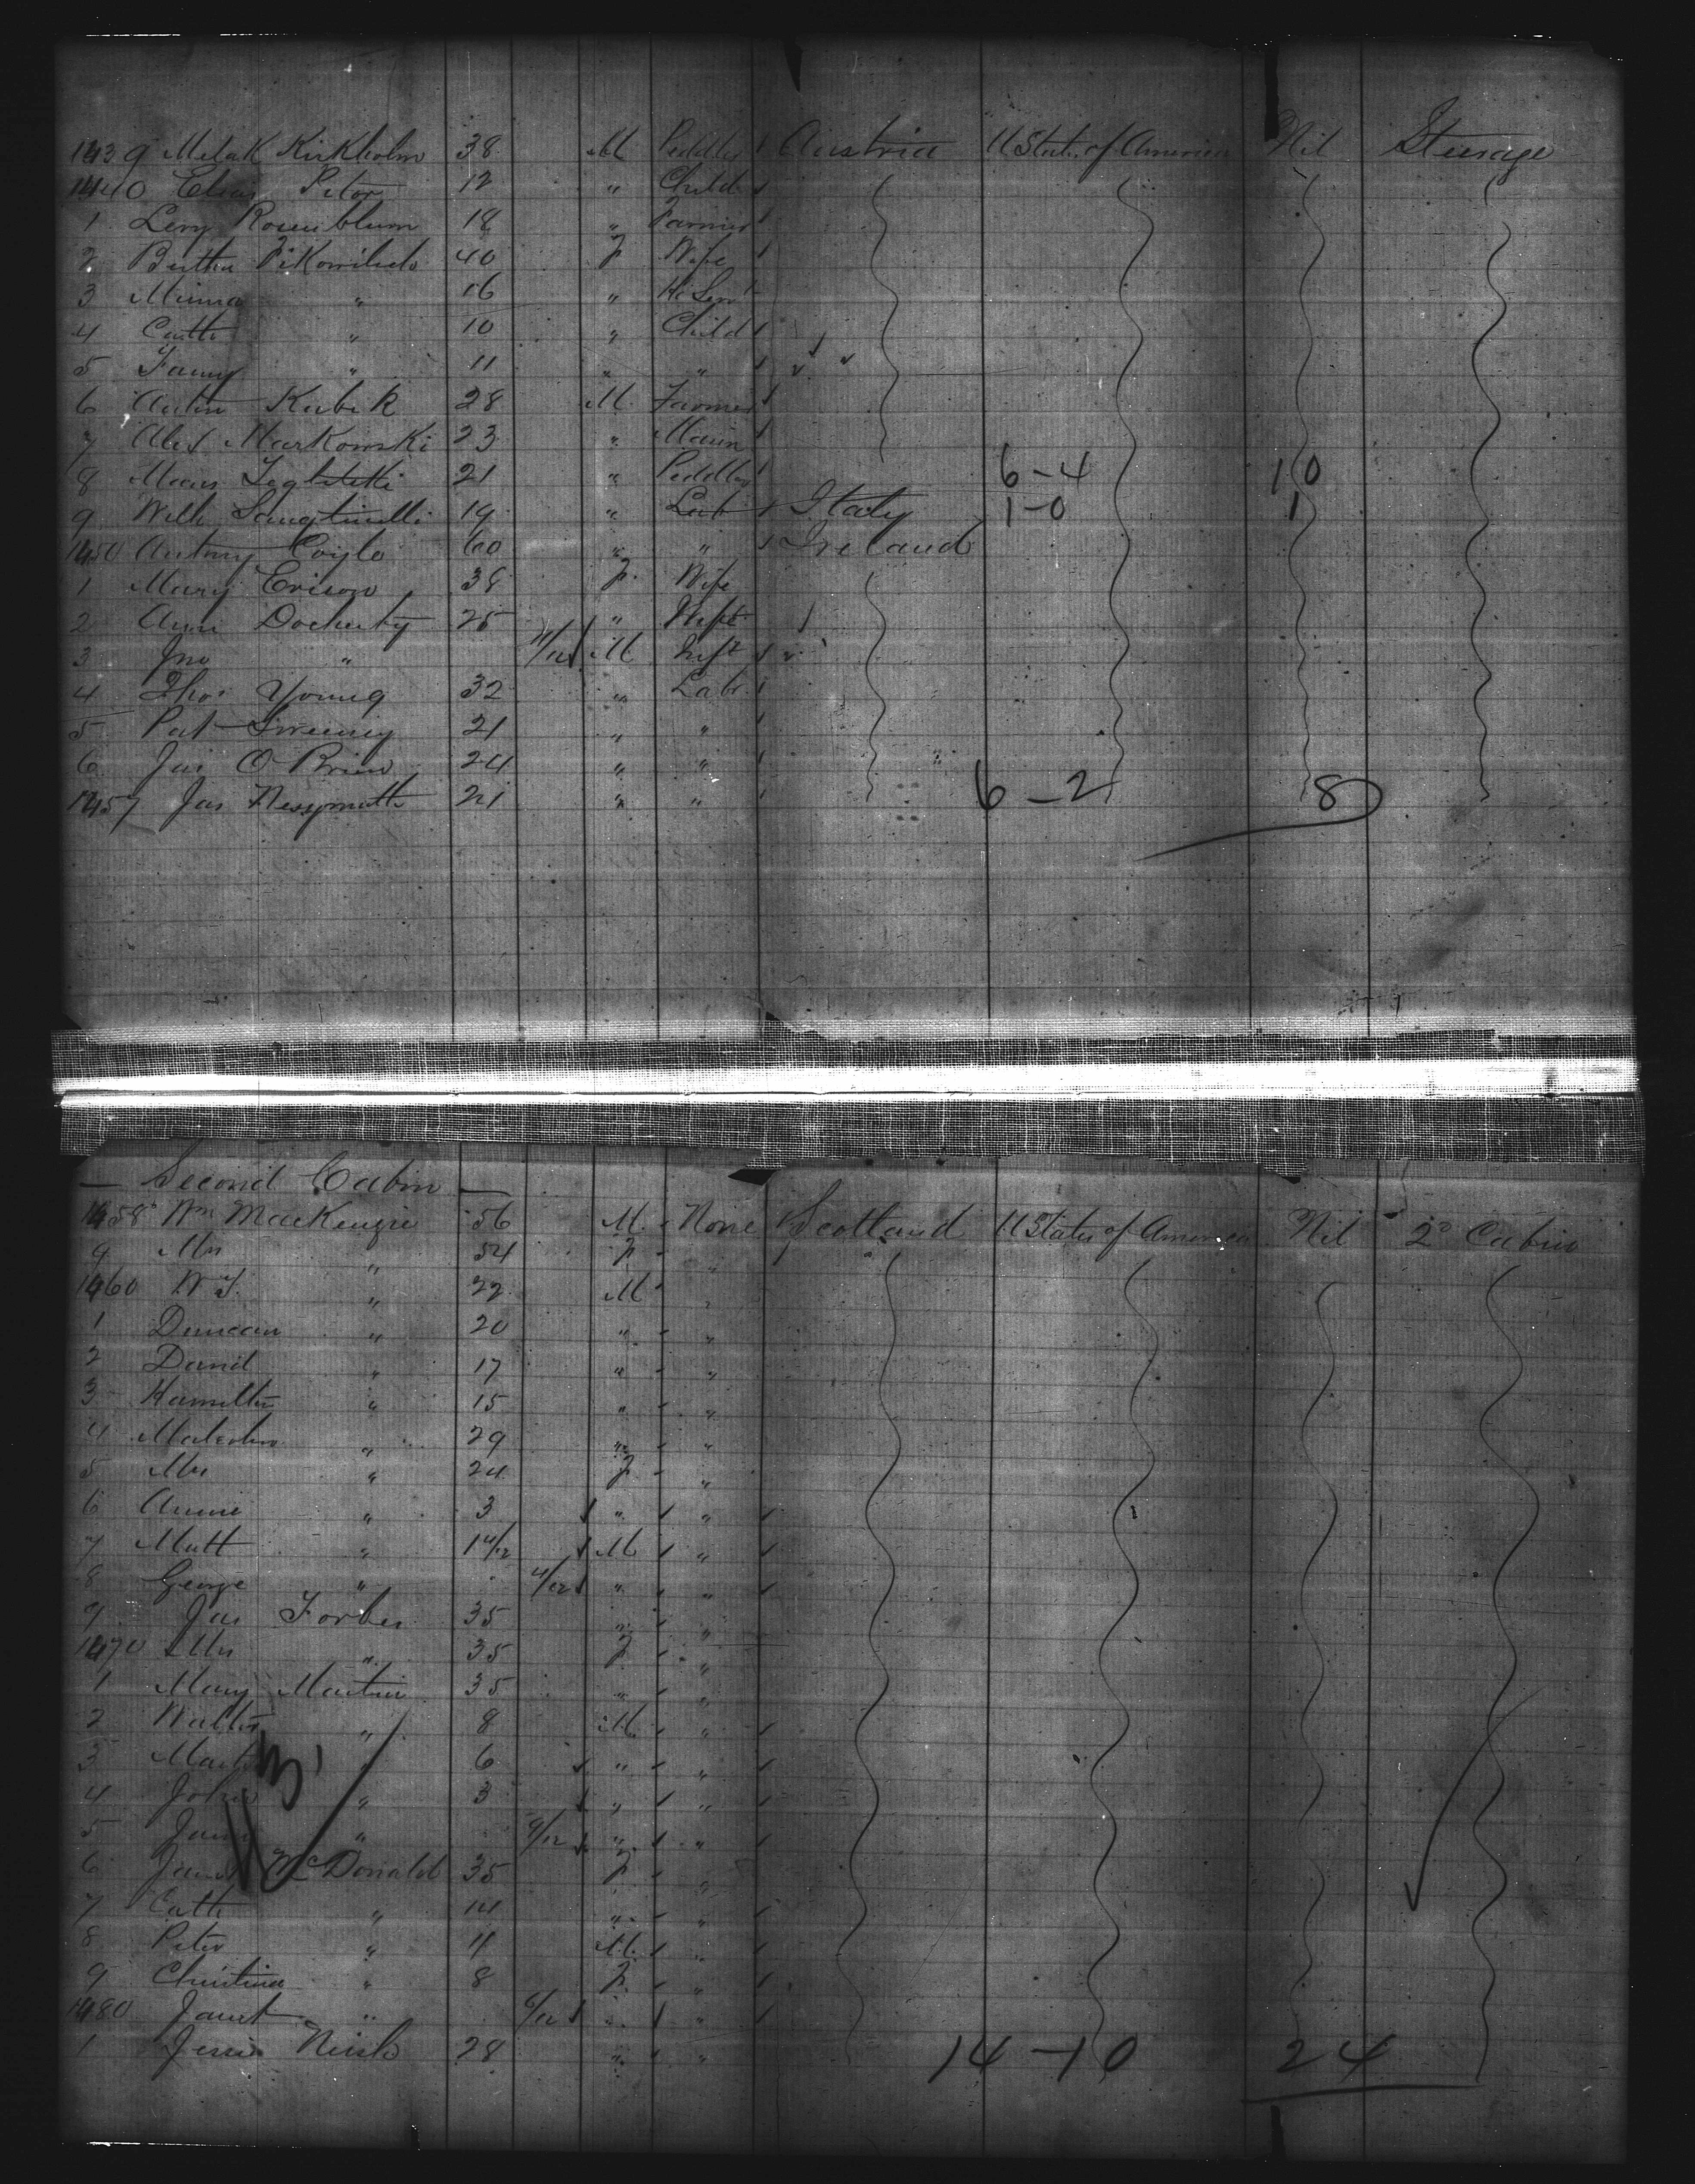 1439 Melak Kirkholm 38 M Peddler Austria U States of America Nil Steerage
1440 Elias Peter 12 " Child
1 Levy Rosenblum 18 " Farmer
2 Bertha 40 F Wife
3 Minna " 16 " H Serv
4 Cath " 10 " Child
5 Fanny " 11 " "
6 Anton Kubik 28 M Farmer
7 Alex Markowski 23 " Mason
8 21 " Peddler 6-4 10
9 Will 19 " Lab Italy 1-0 1
1450 Antony Coyle 60 " " Ireland
1 Mary 38 F Wife
2 Ann Docherty 25 " Wife
3 Jno " 11/12 M Inft
4 Thos Young 32 " Labr
5 Pat Sweeney 21 " "
6 Jas O'Brien 24 " "
1457 Jas Nessmith 21 " " 6-2 8
— Second Cabin —
1458 Wm MacKenzie 56 M None Scotland U States of America Nil 2º Cabin
9 Mrs " 54 F "
1460 W J. " 22 M "
1 Duncan " 20 " "
2 David " 17 " "
3 Hamilton " 15 " "
4 Malcolm " 29 " "
5 Mrs " 24 F "
6 Annie " 3 " "
7 Matt " 1 4/12 M "
8 George " 4/12 " "
9 Jas Forbes 35 " "
1470 Mrs " 35 F "
1 Mary Martin 35 " "
2 Walter " 8 M "
3 " 6 " "
4 John " 3 " "
5 " 9/12 " "
6 McDonald 35 F "
7 Cath " 14 " "
8 Peter " 11 M "
9 Christina " 8 F "
1480 Janet " 6/12 " "
1 Jessie 28 " " 14-10 24